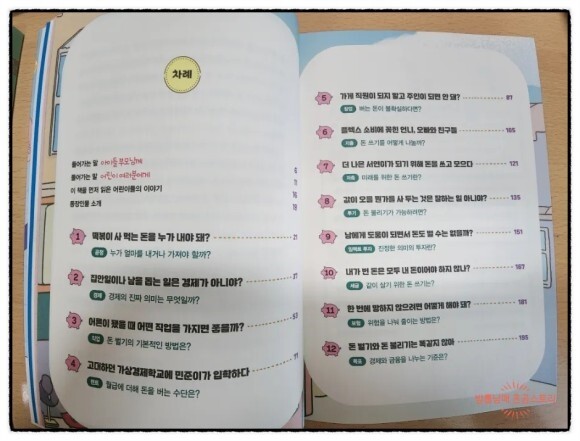 차례
들어가는 말 아이들 부모님께
들어가는 말 어린이 여러분에게
이 책을 먼저 읽은 어린이들의 이야기
등장인물 소개
1 떡볶이 사 먹는 돈을 누가 내야 돼? 21
공정 누가 얼마를 내거나 가져야 할까?
2 집안일이나 남을 돕는 일은 경제가 아니야? 37
경제 경제의 진짜 의미는 무엇일까?
3 어른이 됐을 때 어떤 직업을 가지면 좋을까? 53
직업 돈 벌기의 기본적인 방법은?
4 고대하던 가상경제학교에 민준이가 입학하다 71
월급에 더해 돈을 버는 수단은?
5 가게 직원이 되지 말고 주인이 되면 안 돼? 87
창업 버는 돈이 불확실하다면?
6 플렉스 소비에 꽂힌 언니, 오빠와 친구들 105
지출 돈 쓰기를 어떻게 나눌까?
7 더 나은 서연이가 되기 위해 돈을 쓰고 모으다 121
저축 미래를 위한 돈 쓰기란?
8 값이 오를 뭔가를 사 두는 것은 잘하는 일 아니야? 135
투기 돈 불리기가 가능하려면?
9 남에게 도움이 되면서 돈도 벌 수는 없을까? 151
임팩트 투자 진정한 의미의 투자란?
10 내가 번 돈은 모두 내 돈이어야 하지 않나? 167
세금 같이 살기 위한 돈 쓰기는?
11 한 번에 망하지 않으려면 어떻게 해야 돼? 181
보험 위험을 나눠 줄이는 방법은?
12 돈 벌기와 돈 불리기는 똑같지 않아 195
목표 경제와 금융을 나누는 기준은?